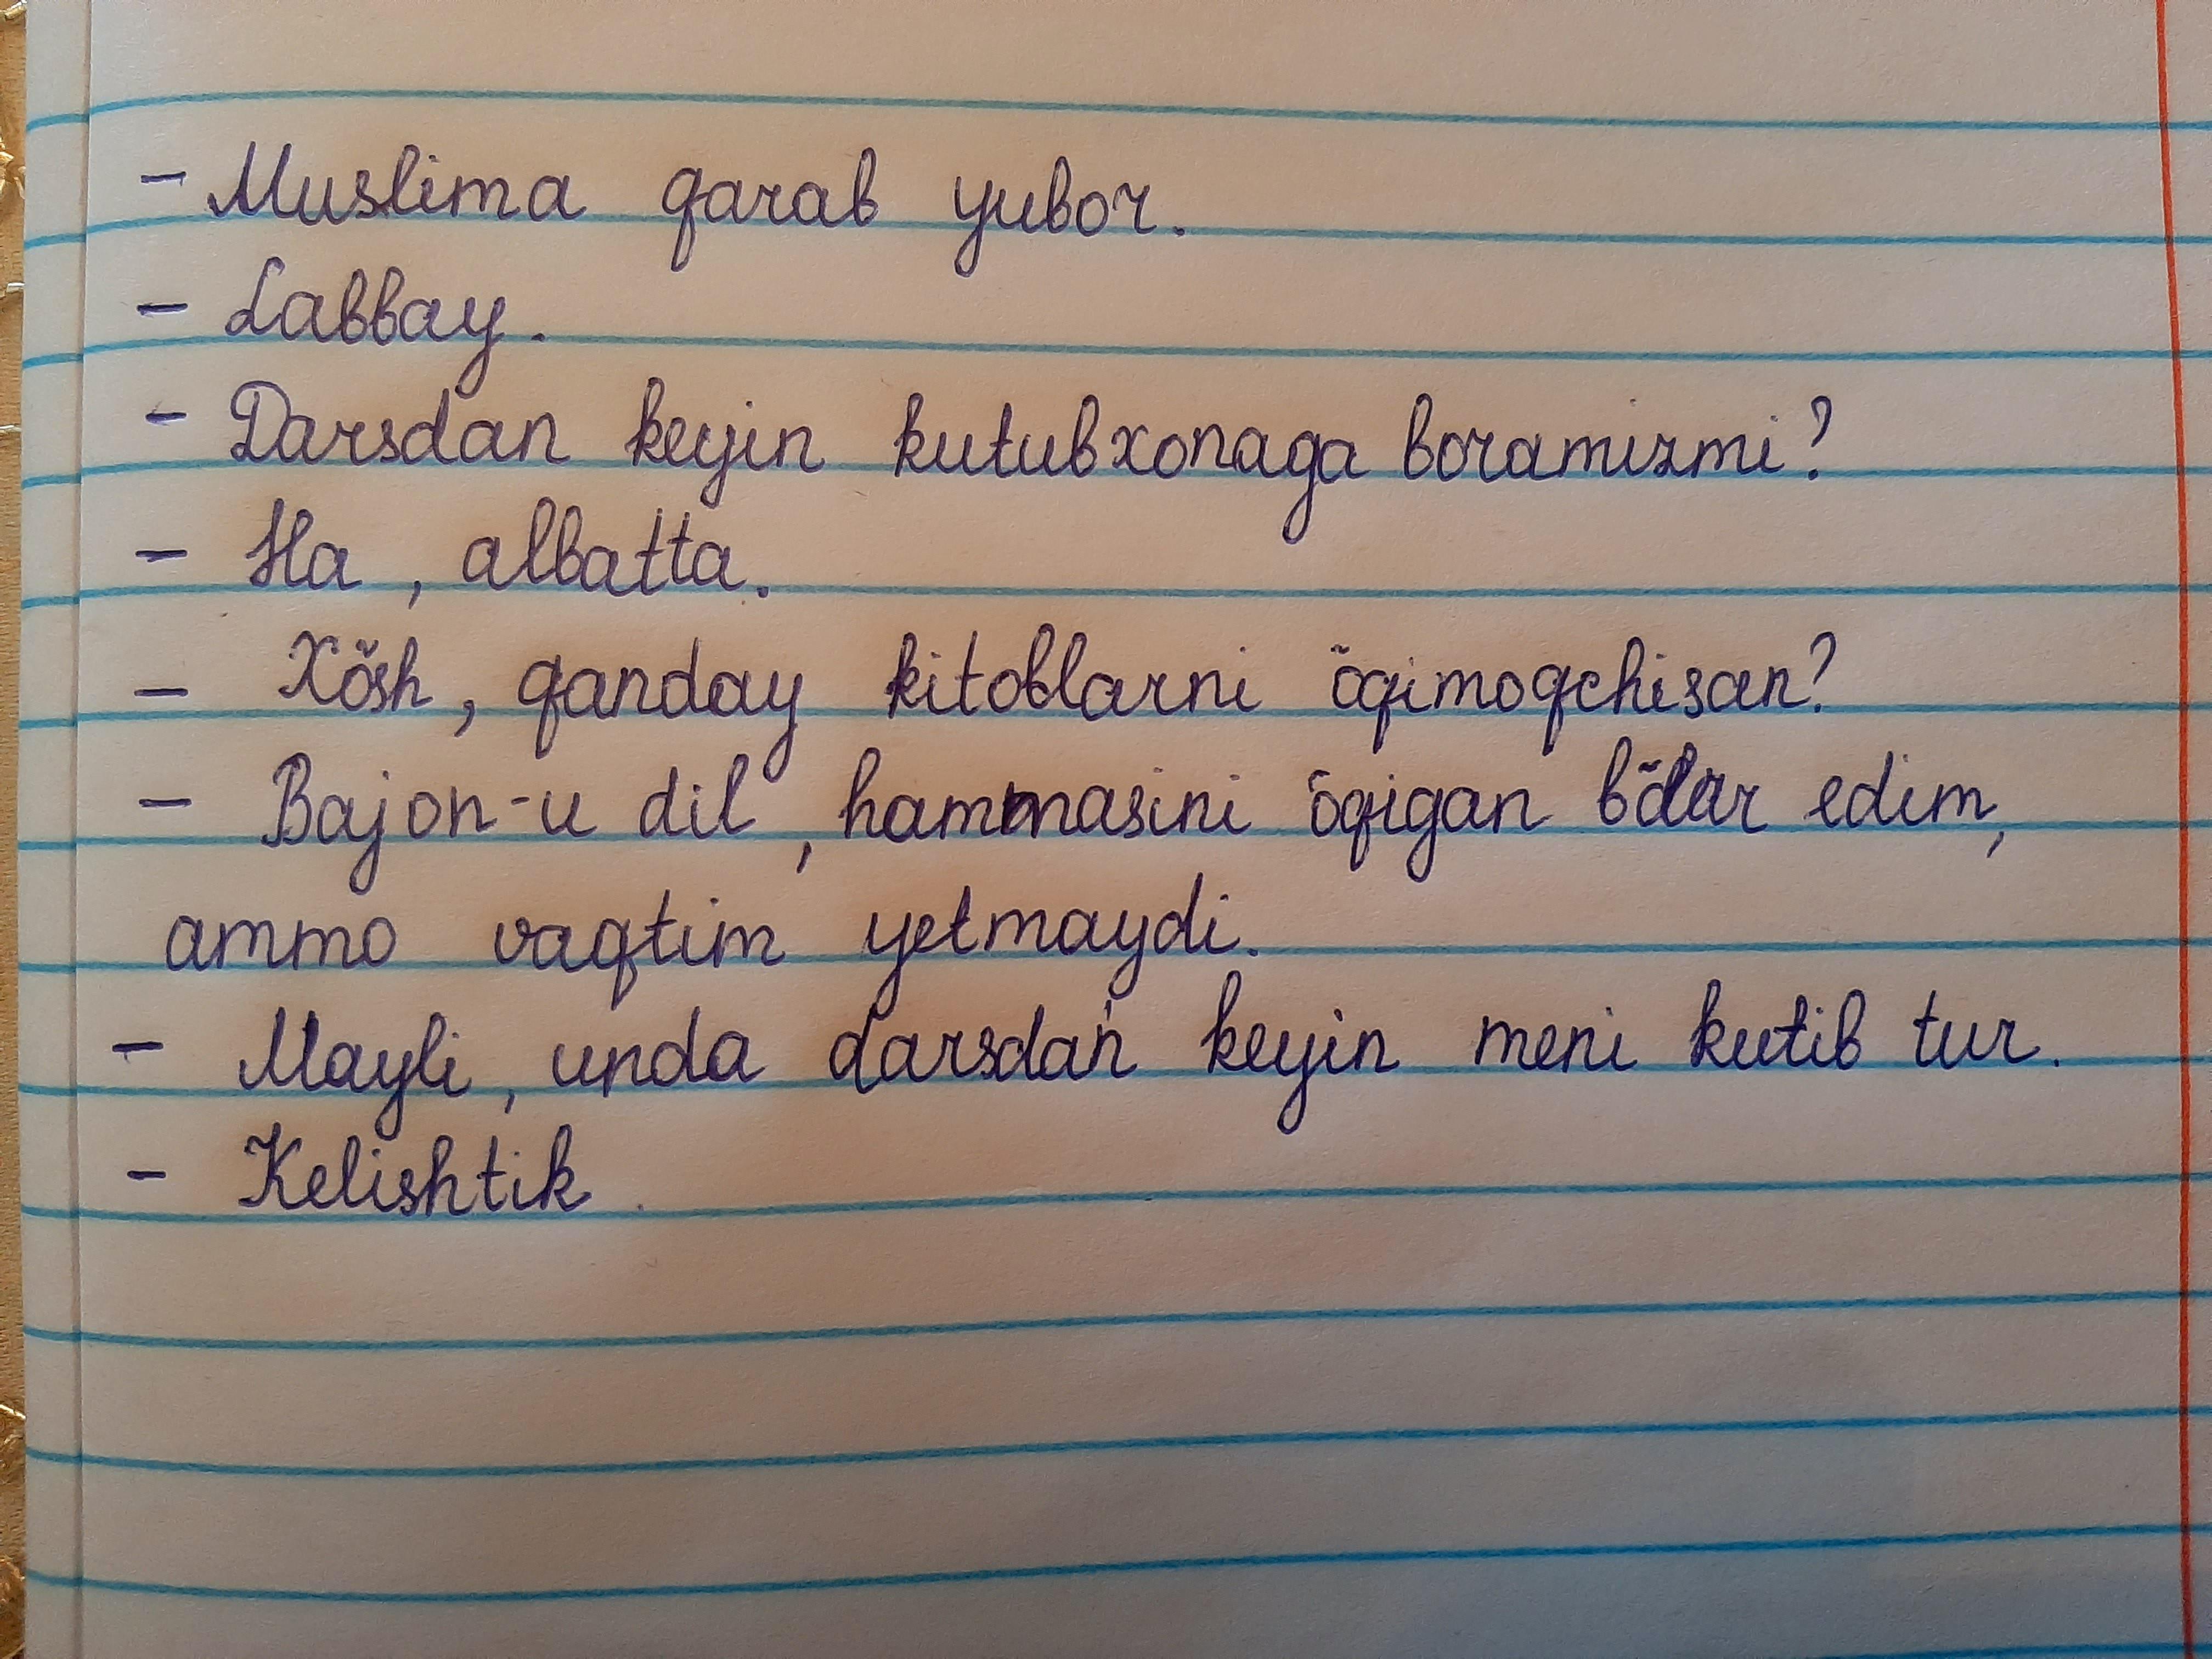 - Muslima qarab yubor.
- Labbay.
- Darsdan keyin kutubxonaga boramizmi?
- Ha, albatta.
- Xõsh, qanday kitoblarni õqimoqchisan?
- Bajon-u dil, hammasini õqigan bõlar edim,
ammo vaqtim yetmaydi.
- Mayli, unda darsdan keyin meni kutib tur.
- Kelishtik.